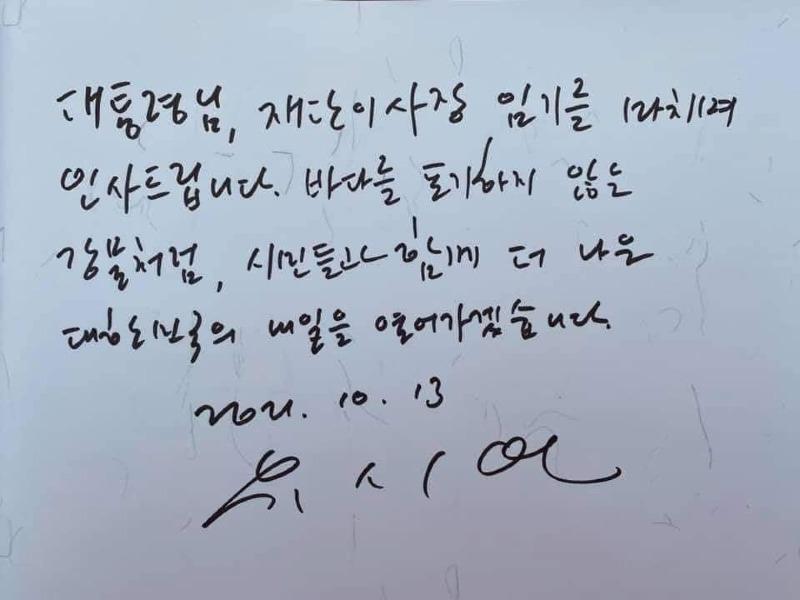 대통령님, 재단이사장 임기를 마치며
인사드립니다. 바다를 포기하지 않는
강물처럼, 시민들과 함께 더 나은
대한민국의 내일을 열어가겠습니다.
2021. 10. 13
유시민